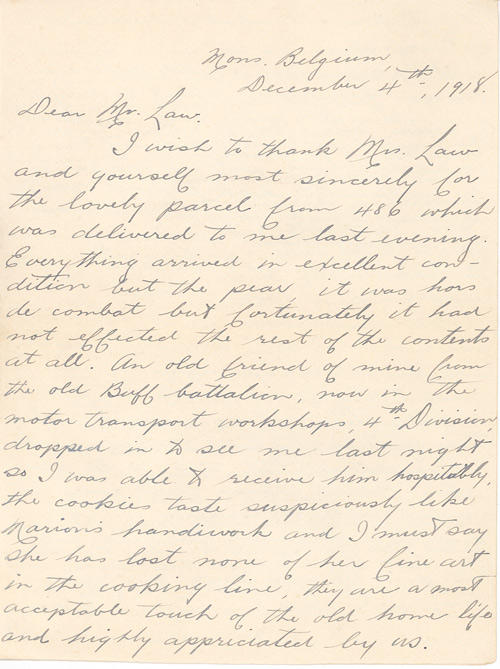 Mons. Belgium,
December 4th, 1918.
Dear Mr. Law.
I wish to thank Mrs. Law
and yourself most sincerely for
the lovely parcel from 486 which
was delivered to me last evening.
Everything arrived in excellent con-
dition but the pear it was hors
de combat but fortunately it had
not effected the rest of the contents
at all. An old friend of mine from
the old Buff battalion, now in the
motor transport workshops, 4th Division,
dropped in to see me last night
so I was able to receive him hospitably,
the cookies taste suspiciously like
Marion's handiwork and I must say
she has lost none of her fine art
in the cooking line, they are a most
acceptable touch of the old home life
and highly appreciated by us.